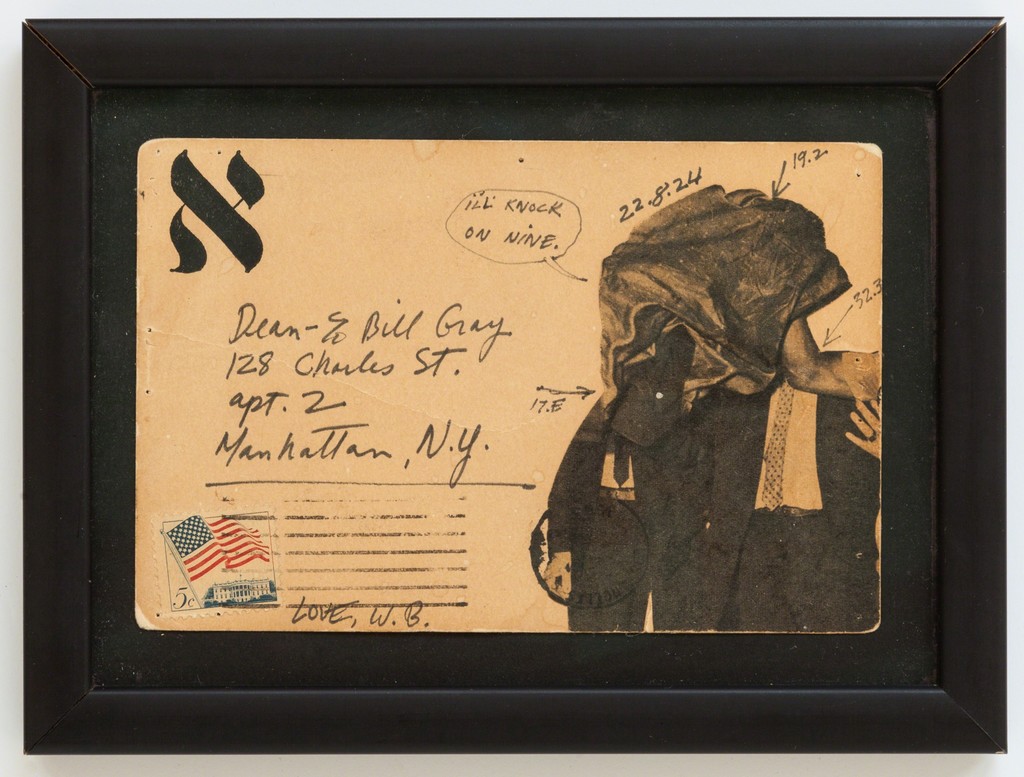 א
ILL KNOCK
ON NINE.
22.8.24
19.2
32.3
17.E
Dean & Bill Gray
128 Charles St.
apt. 2
Manhattan, N.Y.
5c
LOVE, W.B.